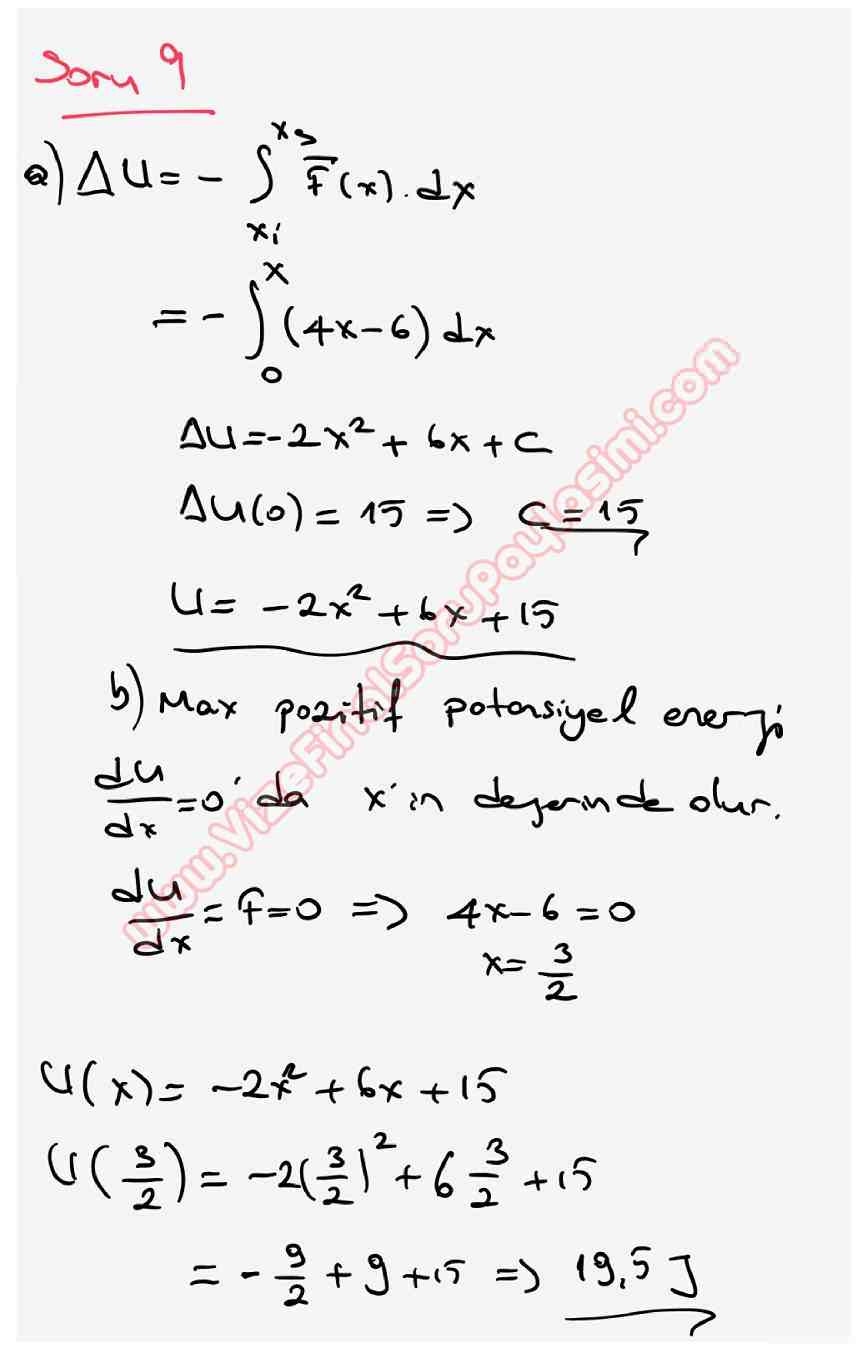 Soru 9
a) ΔU = - ∫_{xi}^{xs} F̅(x) . dx
= - ∫_{0}^{x} (4x-6) dx
ΔU = -2x² + 6x + C
ΔU(0) = 15 => C = 15
U = -2x² + 6x + 15
b) Max pozitif potansiyel enerji
du/dx = 0' da x'in değerinde olur.
du/dx = F = 0 => 4x-6 = 0
x = 3/2
U(x) = -2x² + 6x + 15
U(3/2) = -2(3/2)² + 6 3/2 + 15
= - 9/2 + 9 + 15 => 19,5 J
www.VizeFinalSoruPaylasimi.com